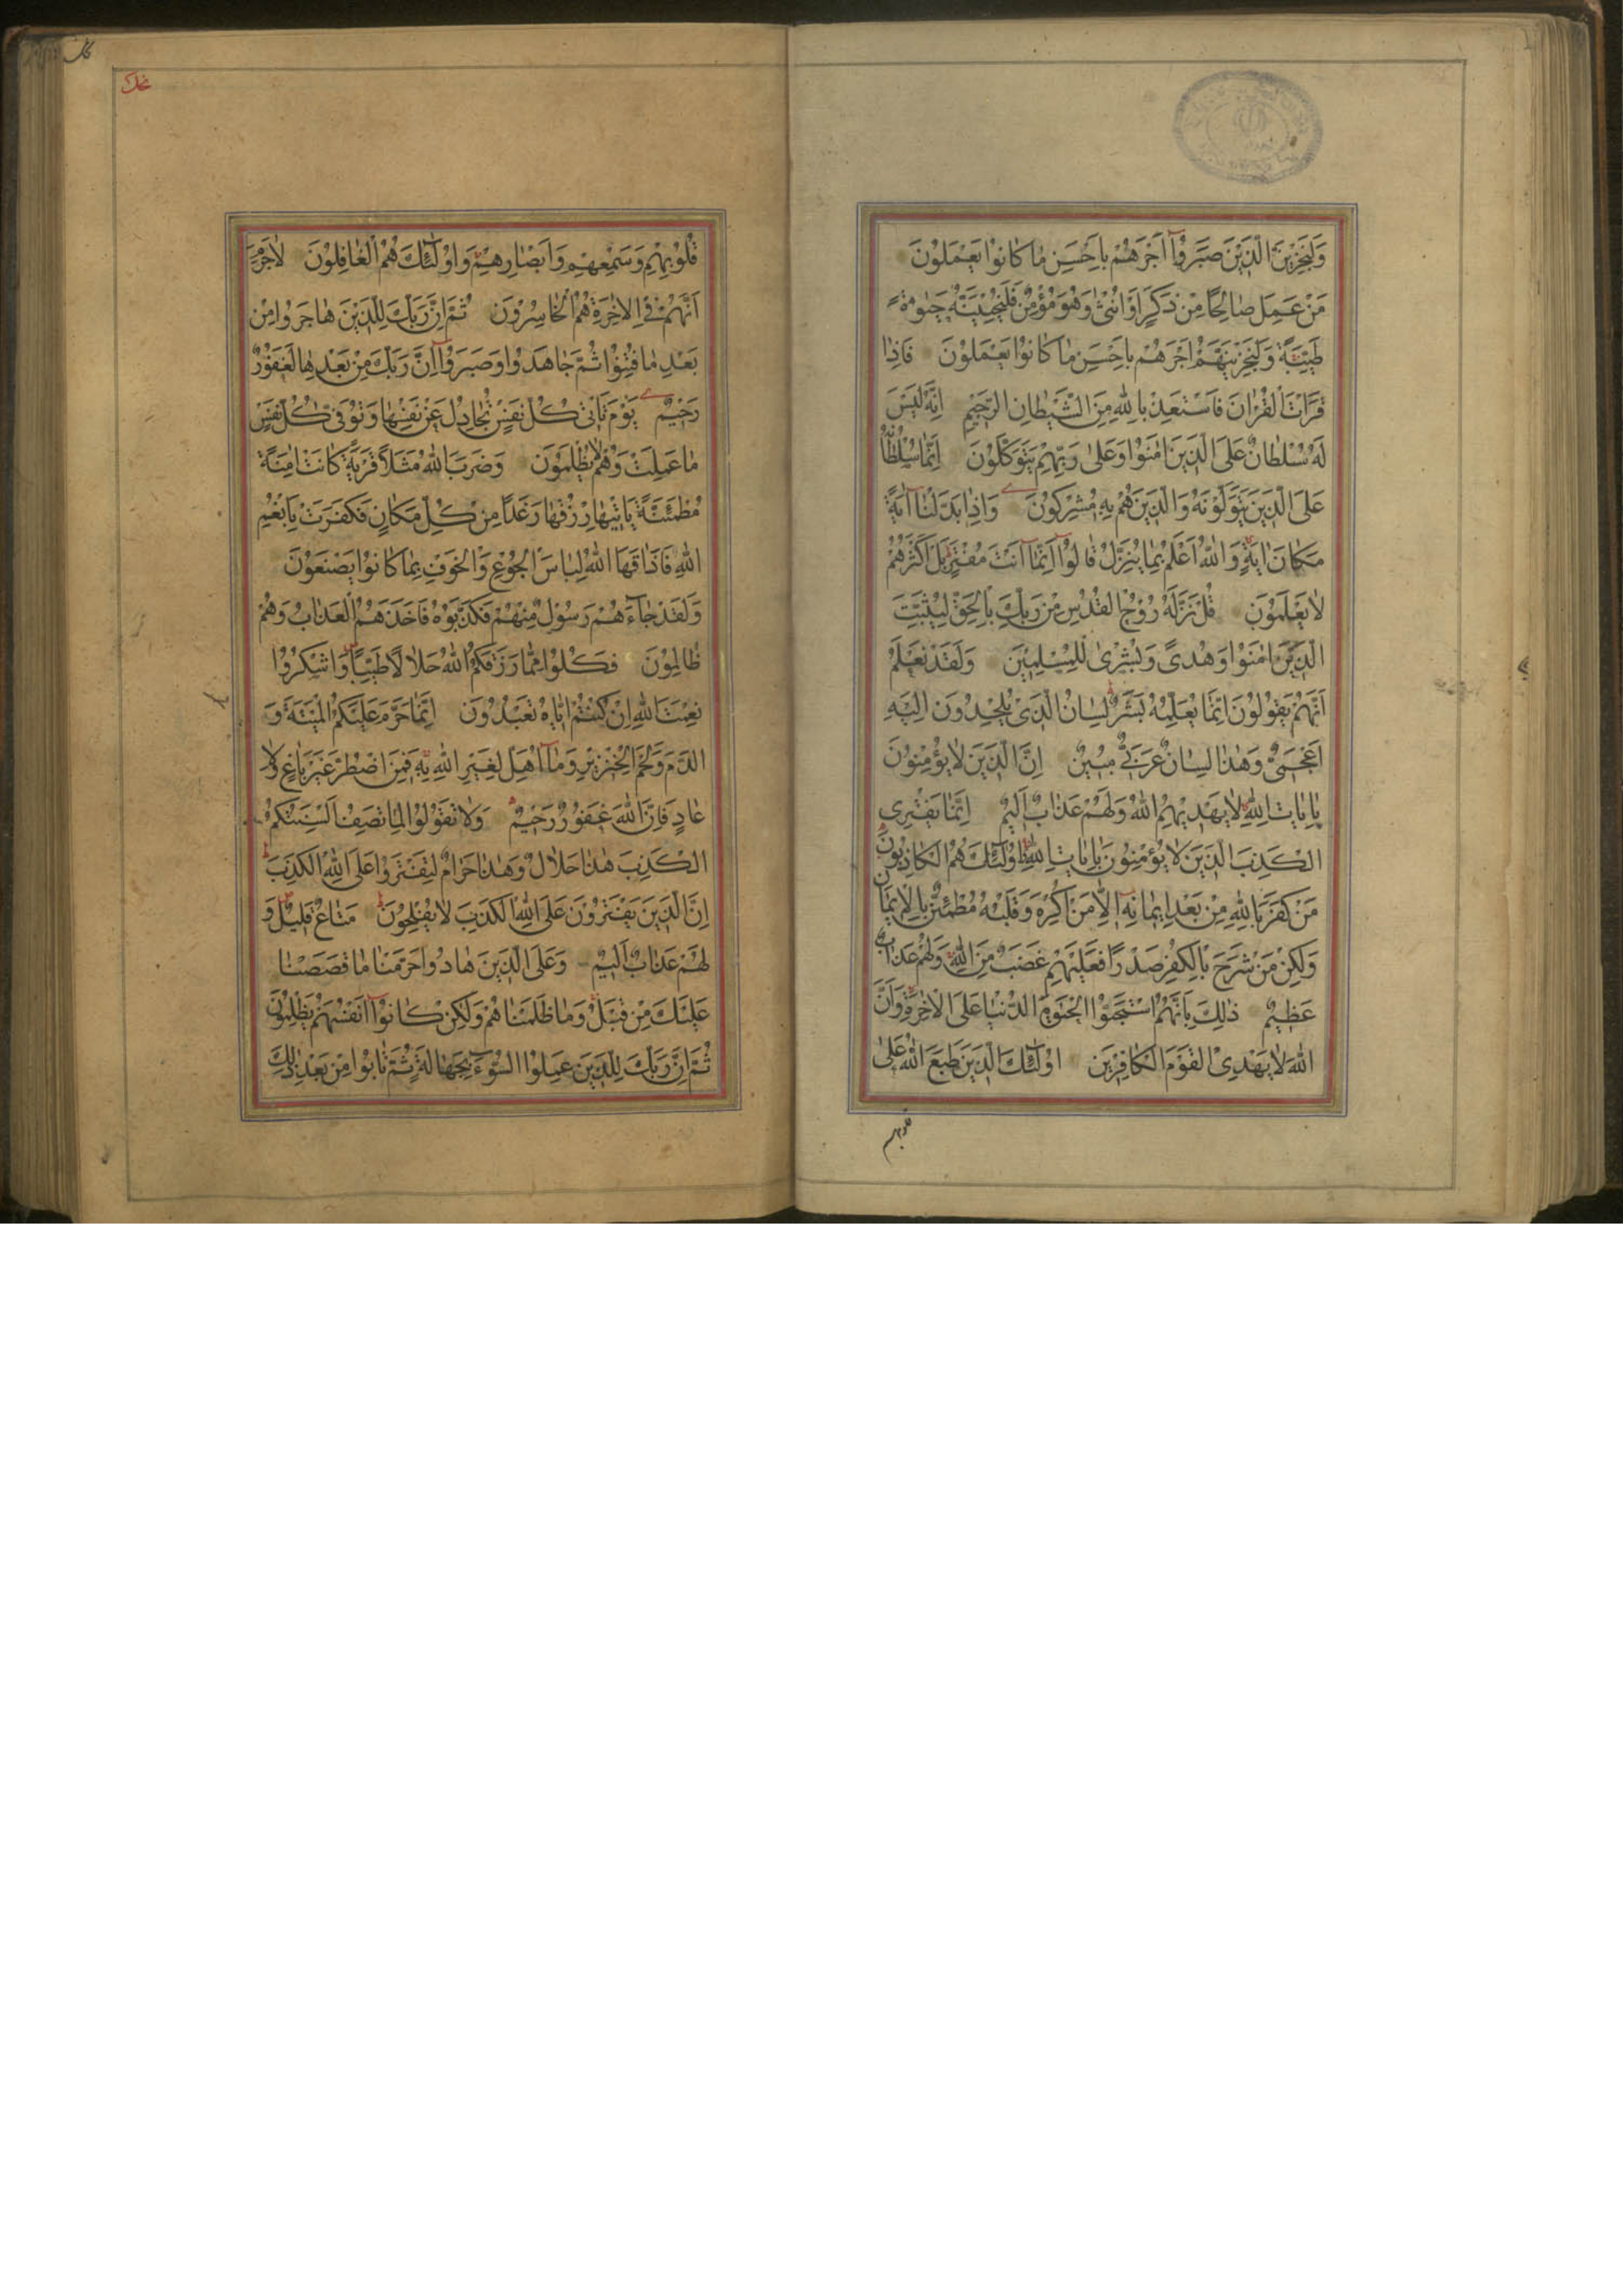 وَلَنَجْزِيَنَّ الَّذِينَ صَبَرُوا أَجْرَهُمْ بِأَحْسَنِ مَا كَانُوا يَعْمَلُونَ
مَنْ عَمِلَ صَالِحًا مِنْ ذَكَرٍ أَوْ أُنْثَىٰ وَهُوَ مُؤْمِنٌ فَلَنُحْيِيَنَّهُ حَيٰوةً
طَيِّبَةً وَلَنَجْزِيَنَّهُمْ أَجْرَهُمْ بِأَحْسَنِ مَا كَانُوا يَعْمَلُونَ فَإِذَا
قَرَأْتَ الْقُرْآنَ فَاسْتَعِذْ بِاللّٰهِ مِنَ الشَّيْطَانِ الرَّجِيمِ إِنَّهُ لَيْسَ
لَهُ سُلْطَانٌ عَلَى الَّذِينَ اٰمَنُوا وَعَلَىٰ رَبِّهِمْ يَتَوَكَّلُونَ إِنَّمَا سُلْطَانُهُ
عَلَى الَّذِينَ يَتَوَلَّوْنَهُ وَالَّذِينَ هُمْ بِهِ مُشْرِكُونَ وَإِذَا بَدَّلْنَا اٰيَةً
مَكَانَ اٰيَةٍ وَاللّٰهُ أَعْلَمُ بِمَا يُنَزِّلُ قَالُوا إِنَّمَا أَنْتَ مُفْتَرٍ بَلْ أَكْثَرُهُمْ
لَا يَعْلَمُونَ قُلْ نَزَّلَهُ رُوحُ الْقُدُسِ مِنْ رَبِّكَ بِالْحَقِّ لِيُثَبِّتَ
الَّذِينَ اٰمَنُوا وَهُدًى وَبُشْرَىٰ لِلْمُسْلِمِينَ وَلَقَدْ نَعْلَمُ
أَنَّهُمْ يَقُولُونَ إِنَّمَا يُعَلِّمُهُ بَشَرٌ لِسَانُ الَّذِي يُلْحِدُونَ إِلَيْهِ
أَعْجَمِيٌّ وَهٰذَا لِسَانٌ عَرَبِيٌّ مُبِينٌ إِنَّ الَّذِينَ لَا يُؤْمِنُونَ
بِاٰيَاتِ اللّٰهِ لَا يَهْدِيهِمُ اللّٰهُ وَلَهُمْ عَذَابٌ أَلِيمٌ إِنَّمَا يَفْتَرِي
الْكَذِبَ الَّذِينَ لَا يُؤْمِنُونَ بِاٰيَاتِ اللّٰهِ وَأُولٰئِكَ هُمُ الْكَاذِبُونَ
مَنْ كَفَرَ بِاللّٰهِ مِنْ بَعْدِ إِيمَانِهِ إِلَّا مَنْ أُكْرِهَ وَقَلْبُهُ مُطْمَئِنٌّ بِالْإِيمَانِ
وَلٰكِنْ مَنْ شَرَحَ بِالْكُفْرِ صَدْرًا فَعَلَيْهِمْ غَضَبٌ مِنَ اللّٰهِ وَلَهُمْ عَذَابٌ
عَظِيمٌ ذٰلِكَ بِأَنَّهُمُ اسْتَحَبُّوا الْحَيٰوةَ الدُّنْيَا عَلَى الْاٰخِرَةِ وَأَنَّ
اللّٰهَ لَا يَهْدِي الْقَوْمَ الْكَافِرِينَ أُولٰئِكَ الَّذِينَ طَبَعَ اللّٰهُ عَلَىٰ
قلوبهم
قُلُوبِهِمْ وَسَمْعِهِمْ وَأَبْصَارِهِمْ وَأُولٰئِكَ هُمُ الْغَافِلُونَ لَا جَرَمَ
أَنَّهُمْ فِي الْاٰخِرَةِ هُمُ الْخَاسِرُونَ ثُمَّ إِنَّ رَبَّكَ لِلَّذِينَ هَاجَرُوا مِنْ
بَعْدِ مَا فُتِنُوا ثُمَّ جَاهَدُوا وَصَبَرُوا إِنَّ رَبَّكَ مِنْ بَعْدِهَا لَغَفُورٌ
رَحِيمٌ يَوْمَ تَأْتِي كُلُّ نَفْسٍ تُجَادِلُ عَنْ نَفْسِهَا وَتُوَفَّىٰ كُلُّ نَفْسٍ
مَا عَمِلَتْ وَهُمْ لَا يُظْلَمُونَ وَضَرَبَ اللّٰهُ مَثَلًا قَرْيَةً كَانَتْ اٰمِنَةً
مُطْمَئِنَّةً يَأْتِيهَا رِزْقُهَا رَغَدًا مِنْ كُلِّ مَكَانٍ فَكَفَرَتْ بِأَنْعُمِ
اللّٰهِ فَأَذَاقَهَا اللّٰهُ لِبَاسَ الْجُوعِ وَالْخَوْفِ بِمَا كَانُوا يَصْنَعُونَ
وَلَقَدْ جَاءَهُمْ رَسُولٌ مِنْهُمْ فَكَذَّبُوهُ فَأَخَذَهُمُ الْعَذَابُ وَهُمْ
ظَالِمُونَ فَكُلُوا مِمَّا رَزَقَكُمُ اللّٰهُ حَلَالًا طَيِّبًا وَاشْكُرُوا
نِعْمَتَ اللّٰهِ إِنْ كُنْتُمْ إِيَّاهُ تَعْبُدُونَ إِنَّمَا حَرَّمَ عَلَيْكُمُ الْمَيْتَةَ وَ
الدَّمَ وَلَحْمَ الْخِنْزِيرِ وَمَا أُهِلَّ لِغَيْرِ اللّٰهِ بِهِ فَمَنِ اضْطُرَّ غَيْرَ بَاغٍ وَلَا
عَادٍ فَإِنَّ اللّٰهَ غَفُورٌ رَحِيمٌ وَلَا تَقُولُوا لِمَا تَصِفُ أَلْسِنَتُكُمُ
الْكَذِبَ هٰذَا حَلَالٌ وَهٰذَا حَرَامٌ لِتَفْتَرُوا عَلَى اللّٰهِ الْكَذِبَ
إِنَّ الَّذِينَ يَفْتَرُونَ عَلَى اللّٰهِ الْكَذِبَ لَا يُفْلِحُونَ مَتَاعٌ قَلِيلٌ وَ
لَهُمْ عَذَابٌ أَلِيمٌ وَعَلَى الَّذِينَ هَادُوا حَرَّمْنَا مَا قَصَصْنَا
عَلَيْكَ مِنْ قَبْلُ وَمَا ظَلَمْنَاهُمْ وَلٰكِنْ كَانُوا أَنْفُسَهُمْ يَظْلِمُونَ
ثُمَّ إِنَّ رَبَّكَ لِلَّذِينَ عَمِلُوا السُّوءَ بِجَهَالَةٍ ثُمَّ تَابُوا مِنْ بَعْدِ ذٰلِكَ